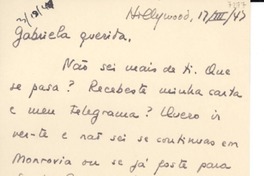 Hollywood, 17/III/47
Gabriela querida,
Não sei mais de ti. Que
se pasa? Recebeste minha carta
e meu telegrama? Quero ir
ver-te e não sei se continuas em
Monrovia ou se já foste para